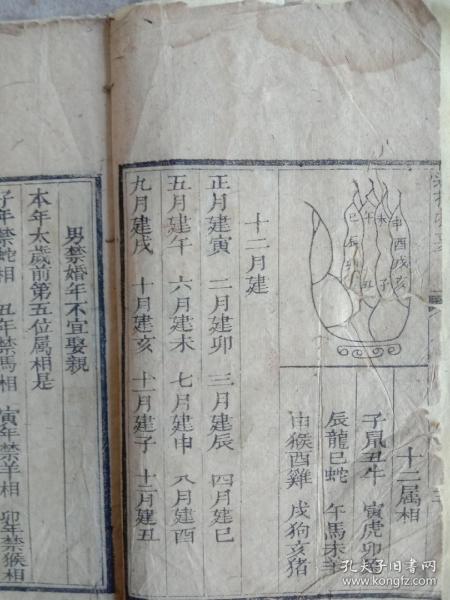 申酉戌亥
未 子
午 丑
巳辰卯
十二属相
子鼠丑牛 寅虎卯
辰龍巳蛇 午馬未羊
申猴酉雞 戌狗亥猪
十二月建
正月建寅 二月建卯 三月建辰 四月建巳
五月建午 六月建未 七月建申 八月建酉
九月建戌 十月建亥 十一月建子 十二月建丑
男禁婚年不宜娶親
本年太歲前第五位属相是
子年禁蛇相 丑年禁馬相 寅年禁羊相 卯年禁猴相
孔夫子旧书网